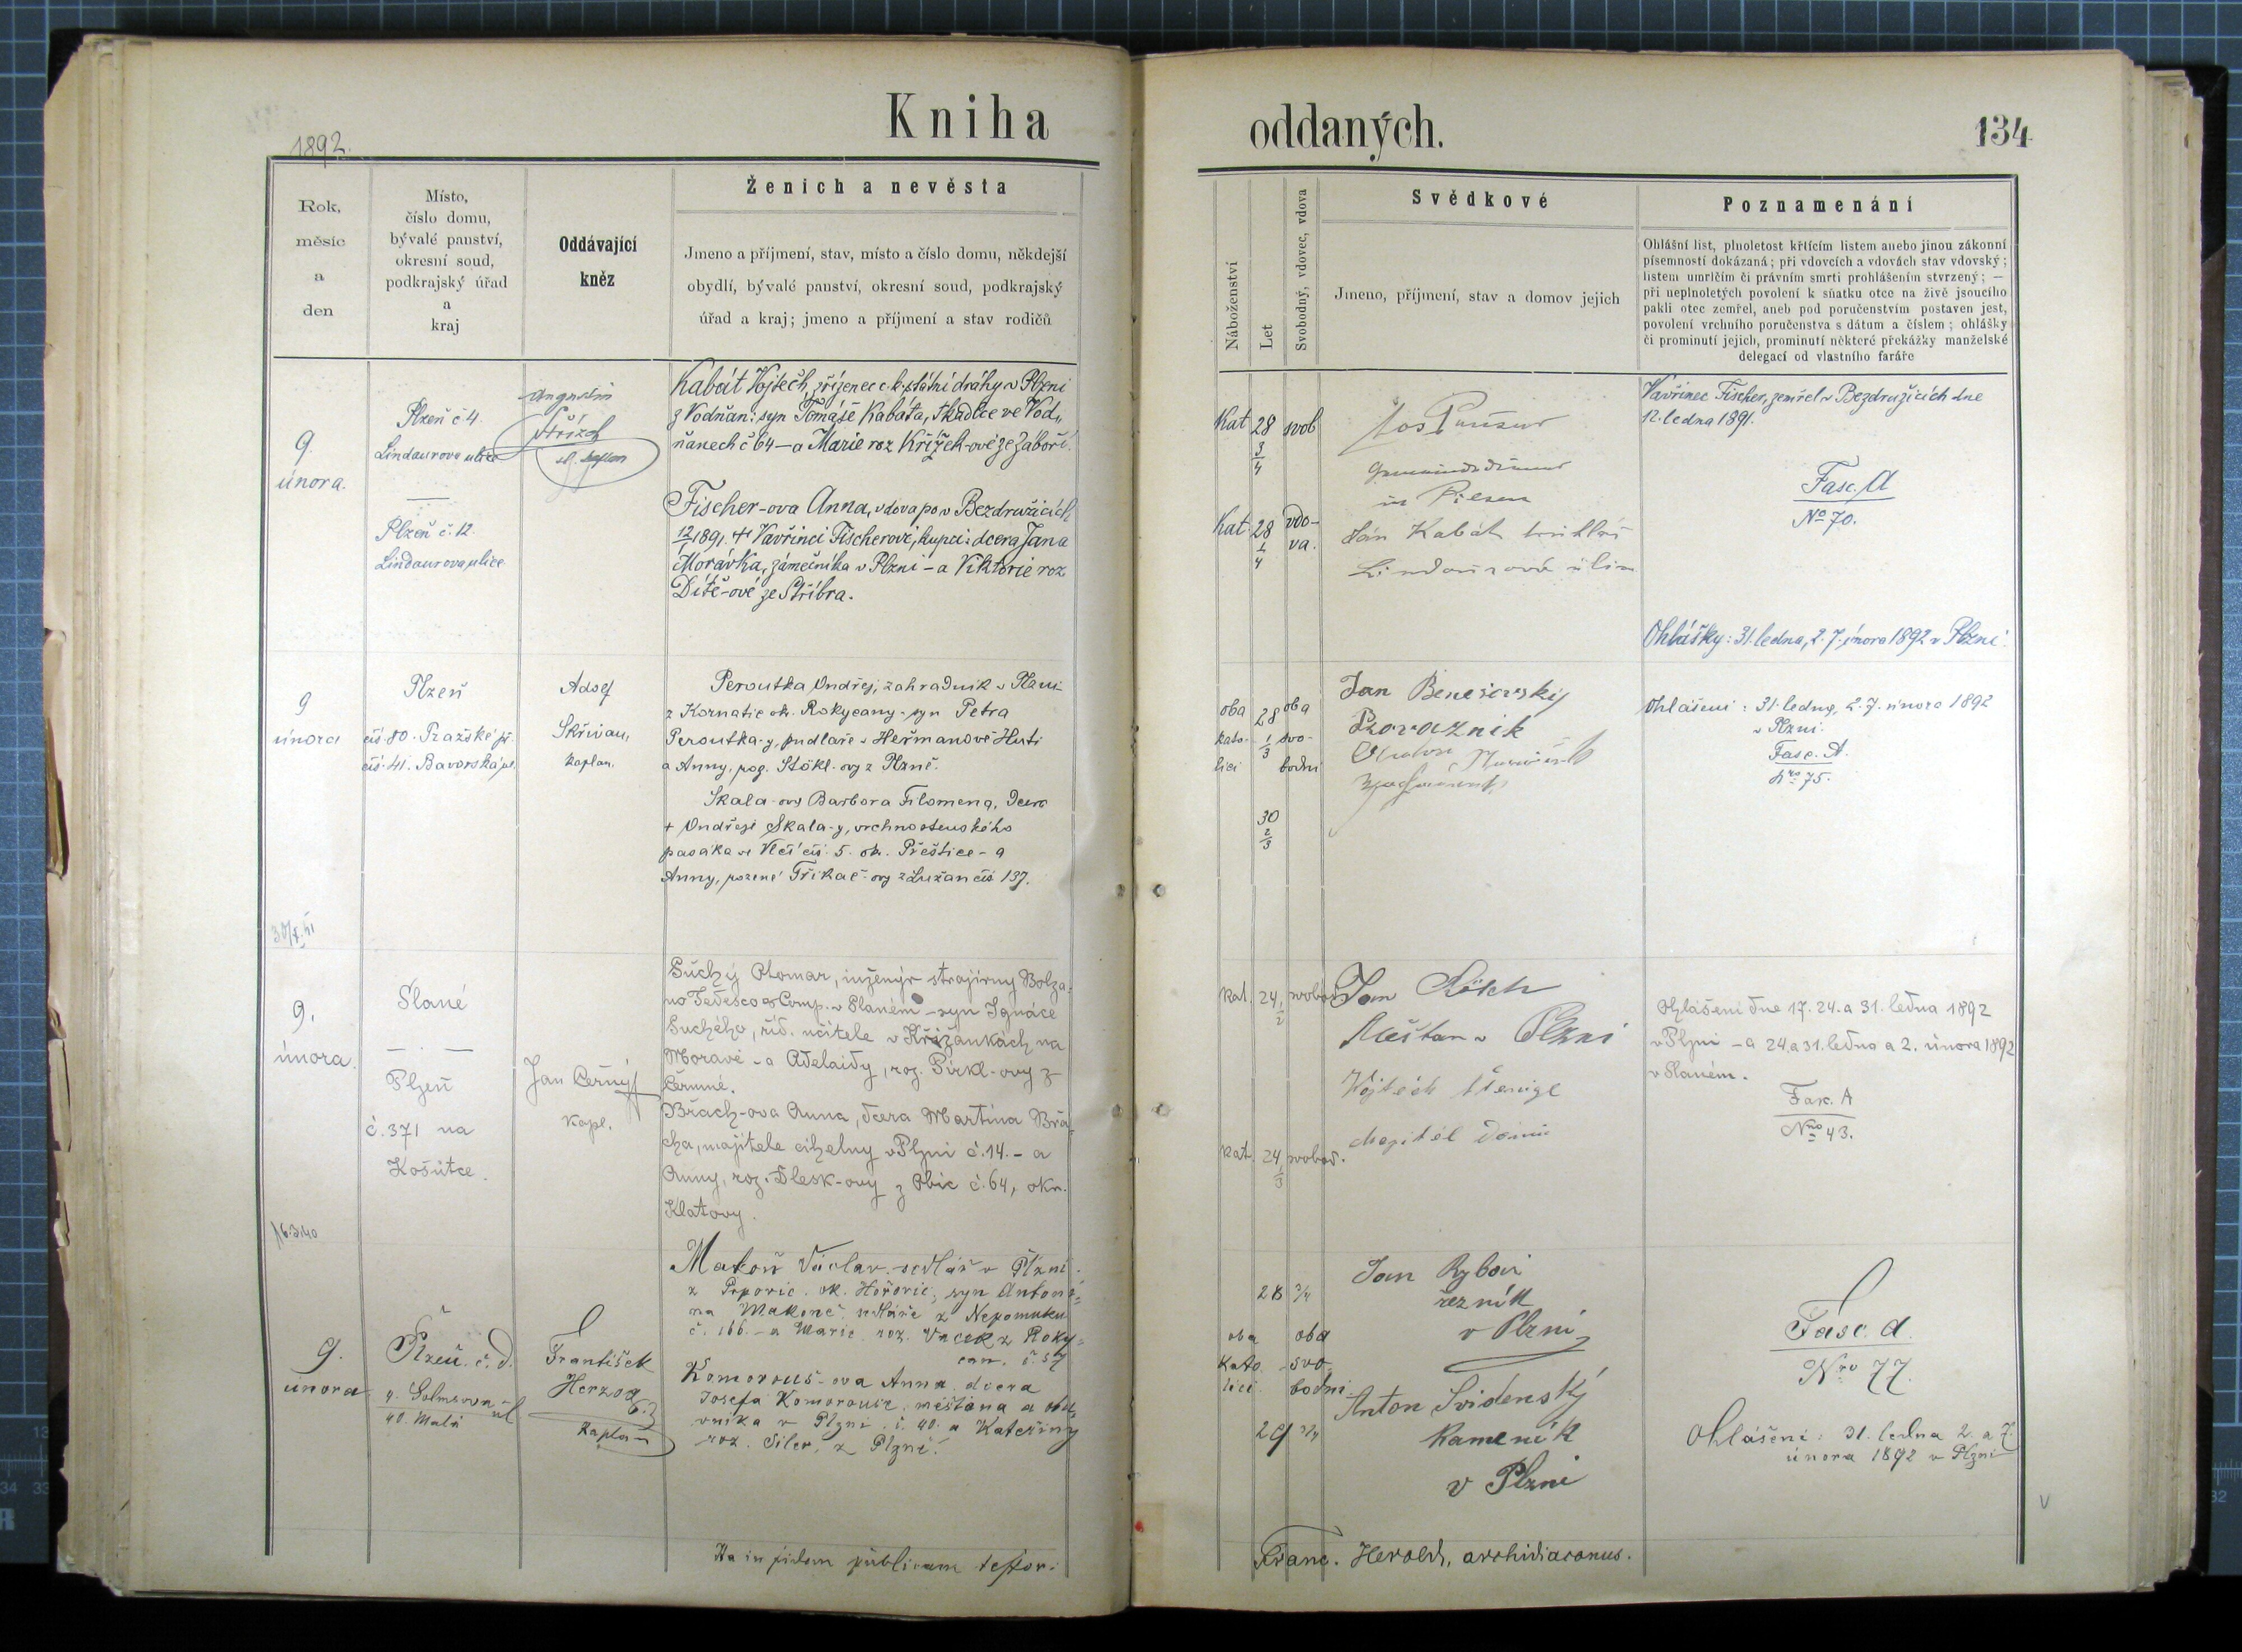 1892.
Kniha
Rok,
měsíc
a
den
Místo,
číslo domu,
bývalé panství,
okresní soud,
podkrajský úřad
a
kraj
Oddávající
kněz
Ženich a nevěsta
Jmeno a příjmení, stav, místo a číslo domu, někdejší
obydlí, bývalé panství, okresní soud, podkrajský
úřad a kraj; jmeno a příjmení a stav rodičů
9.
února.
Plzeň č 4.
Lindaurova ulice
Plzeň č. 12.
Lindaurova ulice
Augustin
Kabát Vojtěch, zřízenec c. k. státní dráhy v Plzni
z Vodňan: syn Tomáše Kabáta, tkadlce ve Vod„
ňanech č 64 – a Marie roz Křížek-ové ze Záboří.
Fischer-ova Anna, vdova po v Bezdružicích
12/1 891. † Vavřinci Fischerovi, kupci: dcera Jana
Morávka, zámečníka v Plzni – a Viktorie roz
Dítě-ové ze Stříbra.
9
února
Plzeň
čís. 80. Pražské př.
čís. 41. Bavorská ul.
Adolf
Skřivan,
kaplan.
Peroutka Ondřej, zahradník v Plzni
z Kornatic ok. Rokycany - syn Petra
Peroutka-y, pudlaře v Heřmanově Huti
a Anny, roz. Stökl-ovy z Plzně.
Skala-ova Barbora Filomena, dcera
+ Ondřeje Skala-y, vrchnostenského
pasáka ve Vlčí čís. 5. ok. Přeštice - a
Anny, rozené Tříkač-ovy z Lužan čís 137.
9.
února.
Slané
Plzeň
č. 371 na
Košutce.
Jan Černý
kapl.
Suchý Otomar, inženýr strojírny Bolza-
no Tedesco & Comp. v Slaném - syn Ignáce
Suchého, říd. učitele v Křižankách na
Moravě - a Adelaidy, roz. Pirkl-ovy z
Čermné.
Brach-ova Anna, dcera Martina Bra-
cha, majitele cihelny v Plzni č. 14. - a
Anny, roz. Dlesk-ovy z Obic č. 64, okr.
Klatovy.
16.3.40
9.
února
Plzeň. č. d.
40. Malá
František
Herzog
Kaplan
Makoň Václav. sedlář v Plzni.
ok. Hořovic, syn Antoní-
na Makoně sedláře z Nepomuku
č. 166. - a Marie roz. Vacek z Roky-
can.
Komorous-ova Anna. dcera
Josefa Komorouse, měšťana a obu-
vníka v Plzni. č. 40. a Kateřiny
roz. Siler, z Plzně.
Ita in fidem publicam testor:
oddaných.
134
Náboženství
Let
Svobodný, vdovec, vdova
Svědkové
Jmeno, příjmení, stav a domov jejich
Poznamenání
Ohlášní list, plnoletost křtícím listem anebo jinou zákonní
písemností dokázaná; při vdovcích a vdovách stav vdovský;
listem umrlčím či právním smrti prohlášením stvrzený; —
při neplnoletých povolení k sňatku otce na živě jsoucího
pakli otec zemřel, aneb pod poručenstvím postaven jest,
povolení vrchního poručenstva s dátum a číslem; ohlášky
či prominutí jejich, prominutí některé překážky manželské
delegací od vlastního faráře
Kat 28 3/4 svob
Gemeindediener
in Pilsen
Kat. 28 1/4 vdo-
va.
Ján Kabát
Lindaurová ulice
Vavřinec Fischer, zemřel v Bezdružicích dne
12. ledna 1891.
Fasc. A
No 70.
Ohlášky: 31. ledna, 2. 7. února 1892 v Plzni.
oba
kato-
lici
28 1/3
oba
svo-
bodni
30 2/3
Jan Benešovský
Provazník
Ohlášeni: 31. ledna, 2. 7. února 1892
v Plzni.
Fasc. A.
Nro 75.
kat. 24 1/2 svobod.
Měšťan v Plzni
Vojtěch
Majitel domu
kat. 24 1/3 svobod.
Ohlášeni dne 17. 24. a 31. ledna 1892
v Plzni - a 24. a 31. ledna a 2. února 1892
v Slaném.
Fasc. A
Nro 43.
28 3/4
oba
kato-
lici
oba
svo-
bodni.
29 3/4
Jan Rybár
řezník
v Plzni
Anton Svidenský
Kameník
v Plzni
Fasc. A.
Nro 77.
Ohlášeni: 31. ledna 2. a 7.
února 1892 v Plzni
Franc. Herold, archidiaconus.